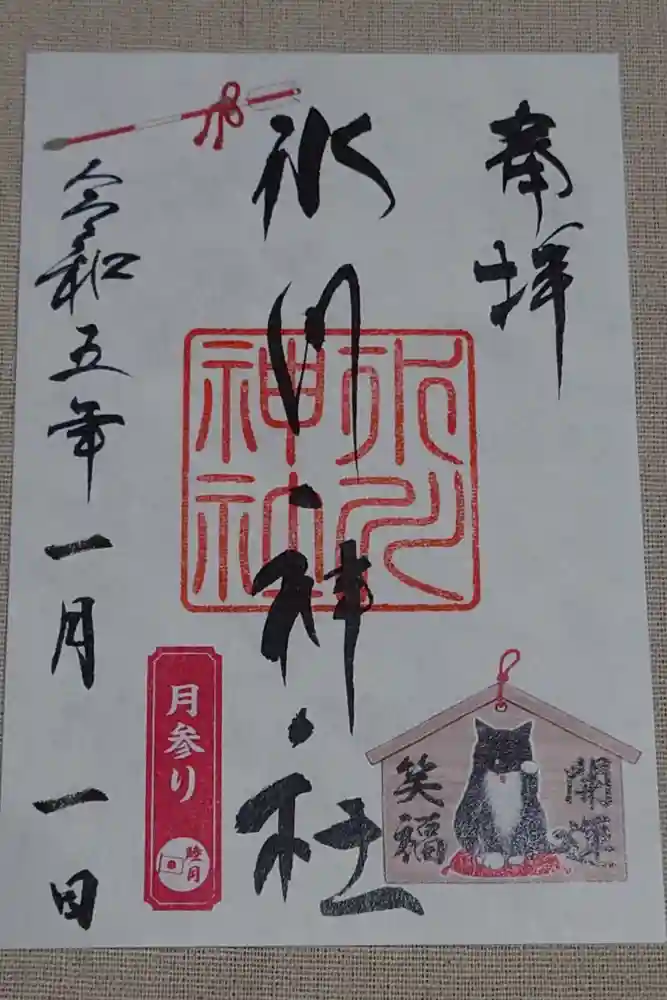 奉拝
氷川神社
氷川
神社
令和五年一月一日
月参り
睦月
開運
笑福